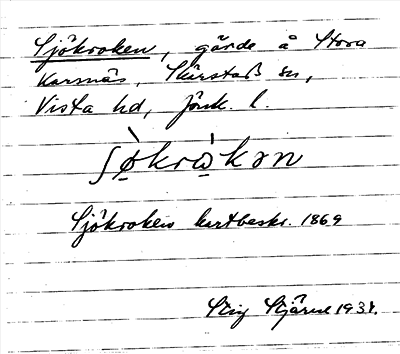 Sjökroken, gärde å Stora
Karsnäs, Skärstads sn,
Vista hd, Jönk. l.
ʃø̀krωkən
Sjökroken kartbeskr. 1869
Stig Stjärne 1931.